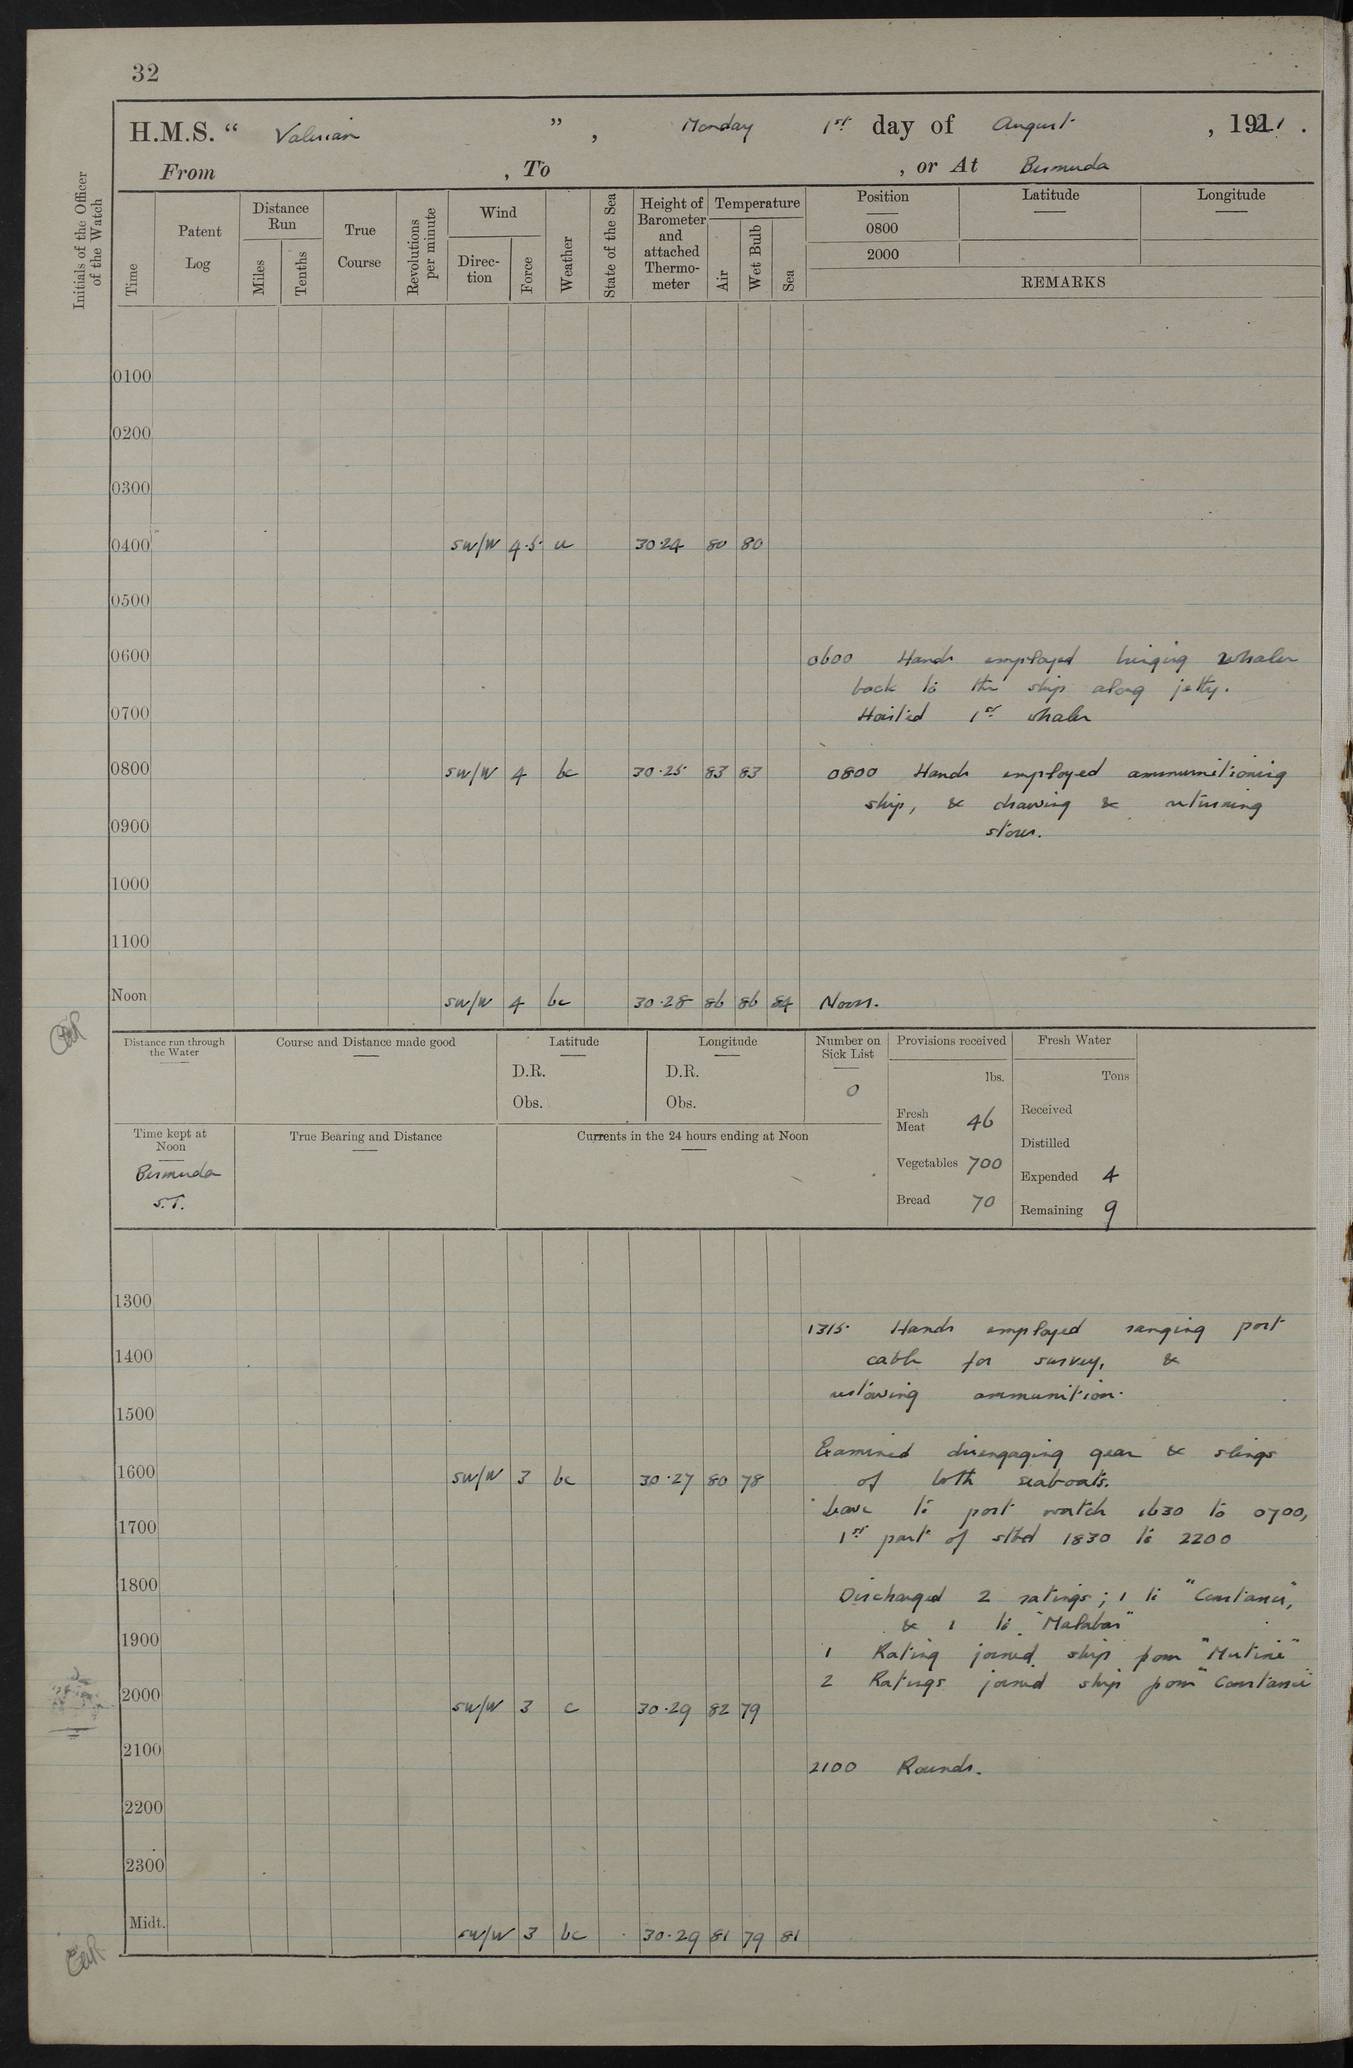 32
H.M.S. “ Valerian ” , Monday 1st day of August , 1921 .
From , To , or At Bermuda
Initials of the Officer of the Watch
Time
Patent Log
Distance Run
Miles
Tenths
True Course
Revolutions per minute
Wind
Direc- tion
Force
Weather
State of the Sea
Height of Barometer and attached Thermo- meter
Temperature
Air
Wet Bulb
Sea
Position
0800
2000
Latitude
Longitude
REMARKS
0100
0200
0300
0400 SW/W 4.5. u 30.24 80 80
0500
0600 0600 Hands employed bringing whaler
back to the ship along jetty.
0700 Hoisted 1st whaler
0800 SW/W 4 bc 30.25 83 83 0800 Hands employed ammunitioning
ship, & drawing & returning
0900 stores.
1000
1100
Noon SW/W 4 bc 30.28 86 86 84 Noon.
Distance run through the Water
Course and Distance made good
Latitude
D.R.
Obs.
Longitude
D.R.
Obs.
Number on Sick List
0
Provisions received
lbs.
Fresh Meat 46
Vegetables 700
Bread 70
Fresh Water
Tons
Received
Distilled
Expended 4
Remaining 9
Time kept at Noon
Bermuda
S.T.
True Bearing and Distance
Currents in the 24 hours ending at Noon
1300
1315. Hands employed ranging port
1400 cable for survey, &
restowing ammunition.
1500
Examined disengaging gear & slings
1600 SW/W 3 bc 30.27 80 78 of both seaboats.
Leave to port watch 1630 to 0700,
1700 1st part of stbd 1830 to 2200
1800 Discharged 2 ratings; 1 to "Constance",
& 1 to "Malabar"
1900 1 Rating joined ship from "Mutine"
2 Ratings joined ship from "Constance"
2000 SW/W 3 c 30.29 82 79
2100 2100 Rounds.
2200
2300
Midt. SW/W 3 bc 30.29 81 79 81